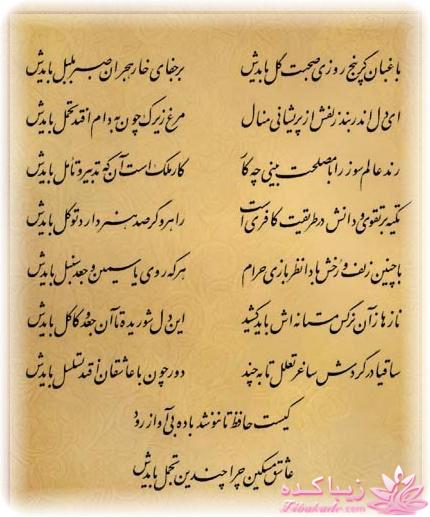 باغبان گر پنج روزی صحبت گل بایدش بر جفای خار هجران صبر بلبل بایدش
ای دل اندر بند زلفش از پریشانی منال مرغ زیرک چون به دام افتد تحمل بایدش
رند عالم سوز را با مصلحت بینی چه کار کار ملک است آن که تدبیر و تامل بایدش
تکیه بر تقوی و دانش در طریقت کافری است راهرو گر صد هنر دارد توکل بایدش
با چنین زلف و رخش بادا نظر بازی حرام هر که روی یاسمین و جعد سنبل بایدش
نازها زآن نرگس مستانه اش باید کشید این دل شوریده تا آن جعد و کاکل بایدش
ساقیا در گردش ساغر تعلل تا به چند دور چون با عاشقان افتد تسلسل بایدش
کیست حافظ تا ننوشد باده بی آواز رود
عاشق مسکین چرا چندین تجمل بایدش
زیباکده
Zibakade.com